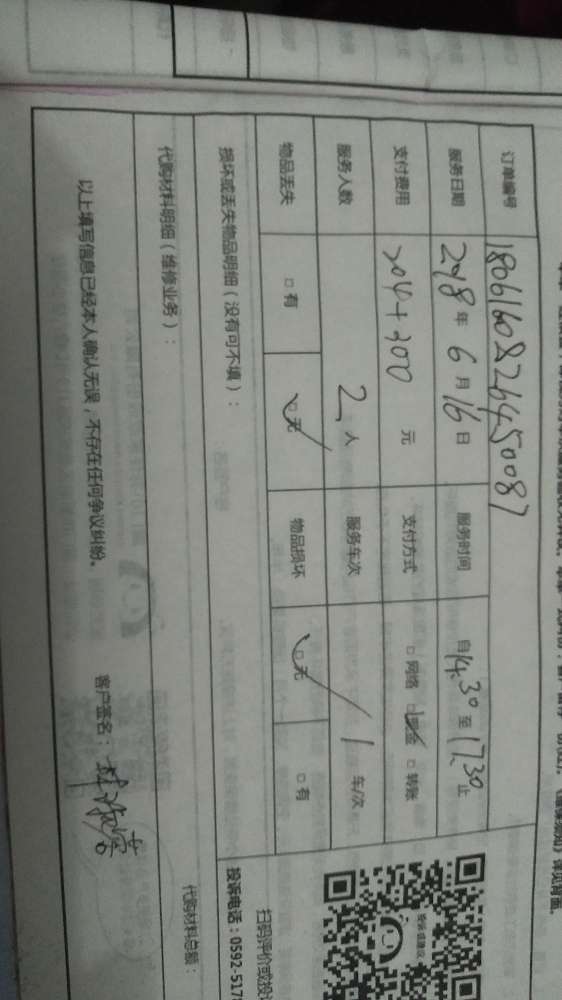 订单编号 1806160826450087
服务日期 2018年6月16日 服务时间 自14.30至17.30止
支付费用 204+300 元 支付方式 □网络 □现金 □转账
服务人数 2人 服务车次 1车/次
物品丢失 □有 □无 物品损坏 □无 □有
损坏或丢失物品明细(没有可不填):
代购材料明细(维修业务):
代购材料总额:
以上填写信息已经本人确认无误,不存在任何争议纠纷。
客户签名:
扫码评价或投
投诉电话:0592-517